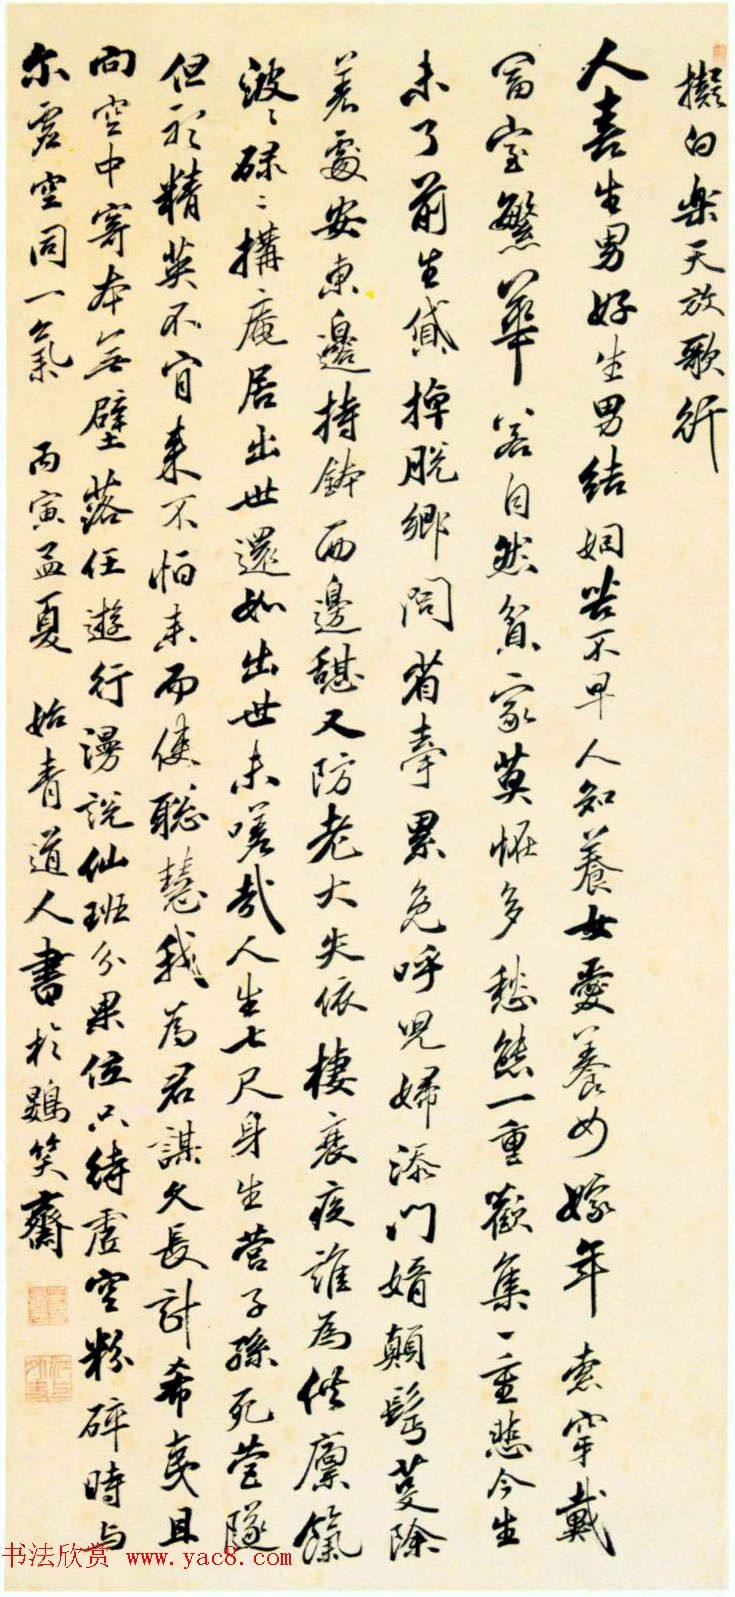 擬白樂天放歌行
人喜生男好生男結姻苦不早人知養女愛養女嫁年索穿戴
富室繁華若自然貧家莫怪多愁態一重歡集一重悲今生
未了前生貸掉脫鄉問省牽累兔呼兒婦添門婿顛髩蔓除
若處安東邊持鉢西邊譿又防老大失依棲衰疾誰為供廩餼
波〻碌〻搆庵居出世還如出世未嗟哉人生七尺身生營子孫死營隧
但祈精英不宦來不怕未而使聰慧我為君謀久長計希夷且
向空中寄本無壁落任遊行漫說仙班分果位只待虛空粉碎時與
尔虛空同一氣 丙寅孟夏 始青道人書於鷃笑齋
书法欣赏 www.yac8.com